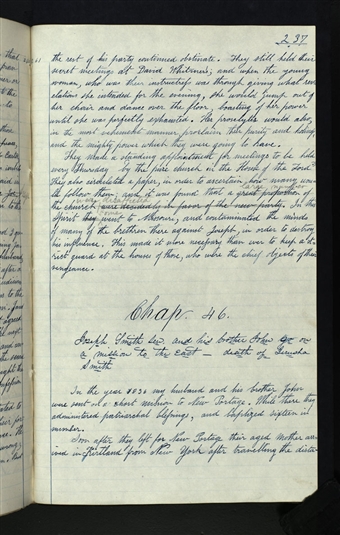 237
the rest of his party continued obstinate. They still held their
secret meetings at David Whitmer's, and when the young
woman, who was their instructress was through giving what rev
elations she intended for the evening, she would jump out of
her chair and dance over the floor, boasting of her power
until she was perfectly exhausted. Her proselytes would also,
in the most vehement manner, proclaim their purity and holiness,
and the mighty power which they were going to have.
They made a standing appointment for meetings to be held
every Thursday by the pure church in the House of the Lord.
They also circulated a paper, in order to ascertain, how many wou
ld follow them, and it was found that a great proportion of
large number
the church were decidedly in favor of the new party. In this
were disaffected
Spirit they went to Missouri, and contaminated the minds
of many of the brethren there against Joseph, in order to destroy
his influence. This made it more necessary than ever to keep a st
rict guard at the houses of those, who were the chief objects of their
vengeance.
Chap. 46.
Joseph Smith sen and his brother John go on
a mission to the east — death of Jerusha
Smith
In the year 1836 my husband and his brother John
were sent on a short mission to New Portage. While there they
administered patriarchal blessings, and baptized sixteen in
number.
Soon after they left for New Portage their aged Mother arr
ived in Kirtland from New York after travelling the dista